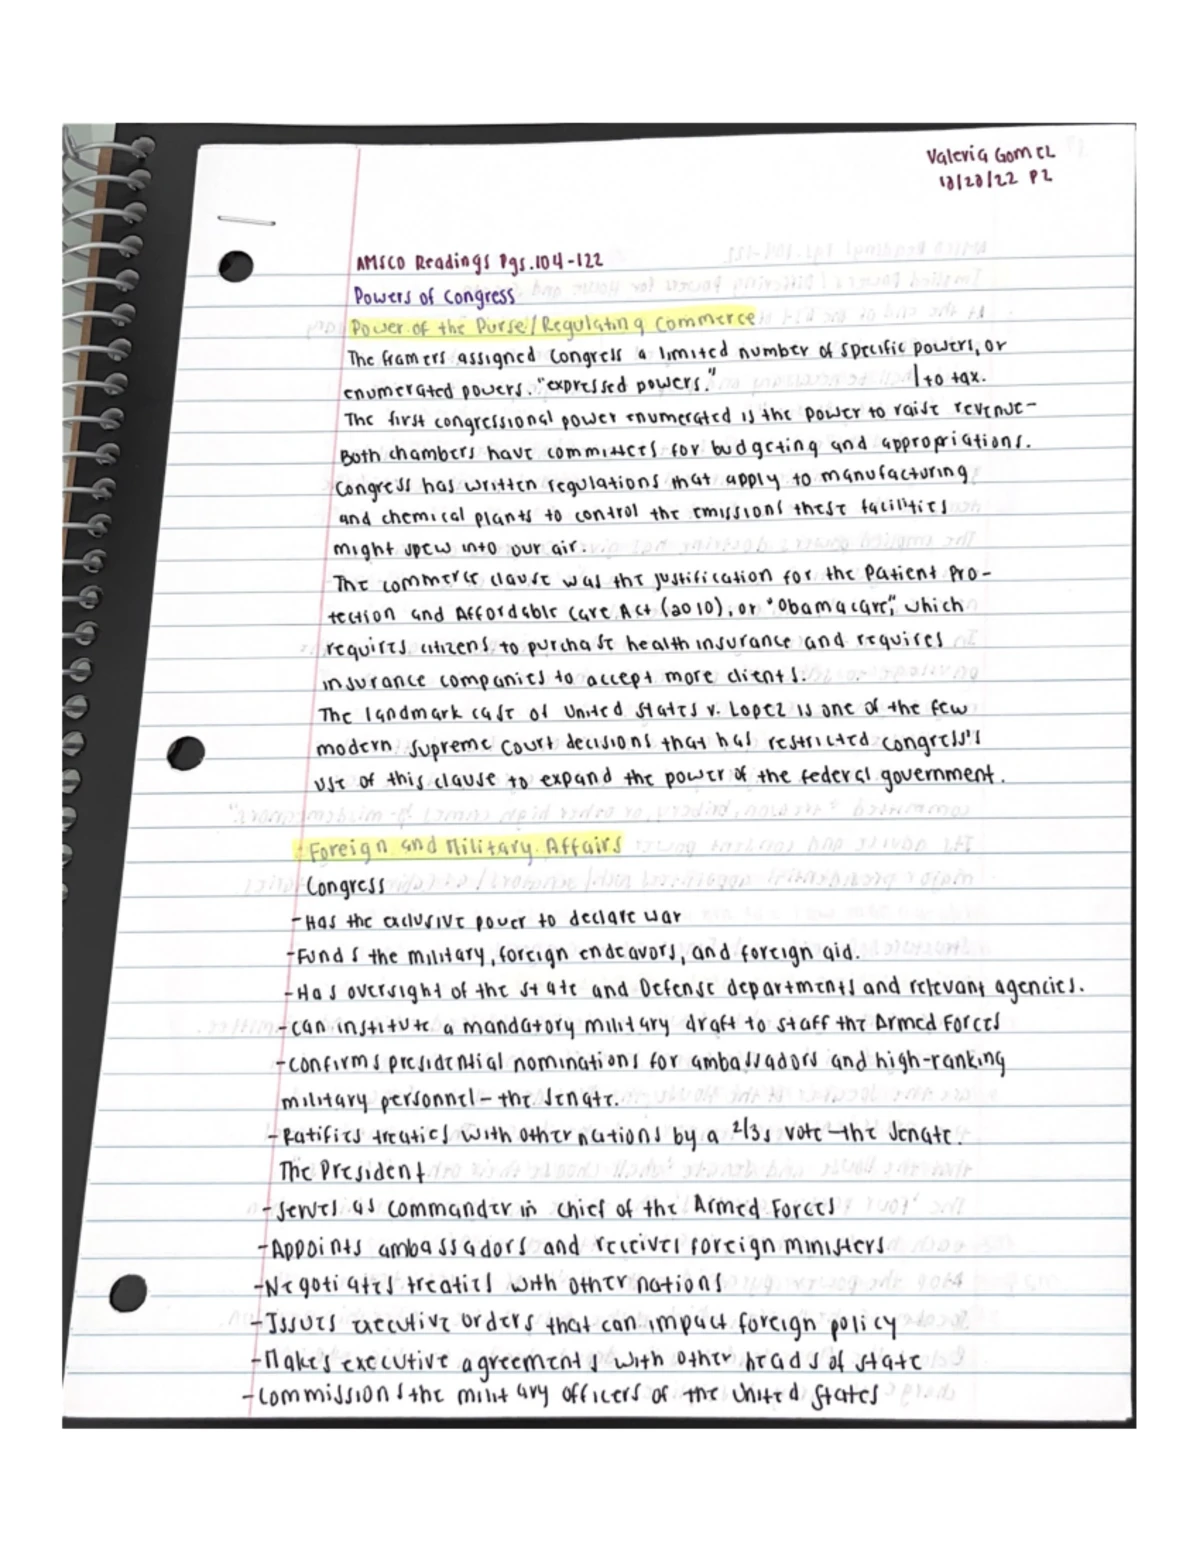 Valeria Gomez
10/20/22 P2
AMSCO Readings Pgs.104-122
Powers of Congress
Power of the Purse/Regulating Commerce
The framers assigned Congress a limited number of specific powers, or
enumerated powers. "expressed powers."
to tax.
The first congressional power enumerated is the power to raise revenue-
Both chambers have committees for budgeting and appropriations.
Congress has written regulations that apply to manufacturing
and chemical plants to control the emissions these facilities
might spew into our air.
The commerce clause was the justification for the Patient Pro-
tection and Affordable Care Act (2010), or "Obamacare," which
requires citizens to purchase health insurance and requires
insurance companies to accept more clients.
The landmark case of United States v. Lopez is one of the few
modern Supreme Court decisions that has restricted congress's
use of this clause to expand the power of the federal government.
Foreign and Military Affairs
Congress
-Has the exclusive power to declare war
-Funds the military, foreign endeavors, and foreign aid.
-Has oversight of the state and Defense departments and relevant agencies.
-can institute a mandatory military draft to staff the Armed Forces
-confirms presidential nominations for ambassadors and high-ranking
military personnel - the Senate.
-Ratifies treaties with other nations by a 2/3s vote-the Senate.
The President
-Serves as commander in chief of the Armed Forces
-Appoints ambassadors and receives foreign ministers
-Negotiates treaties with other nations
-Issues executive orders that can impact foreign policy
-Makes executive agreements with other heads of state
-commissions the military officers of the United States